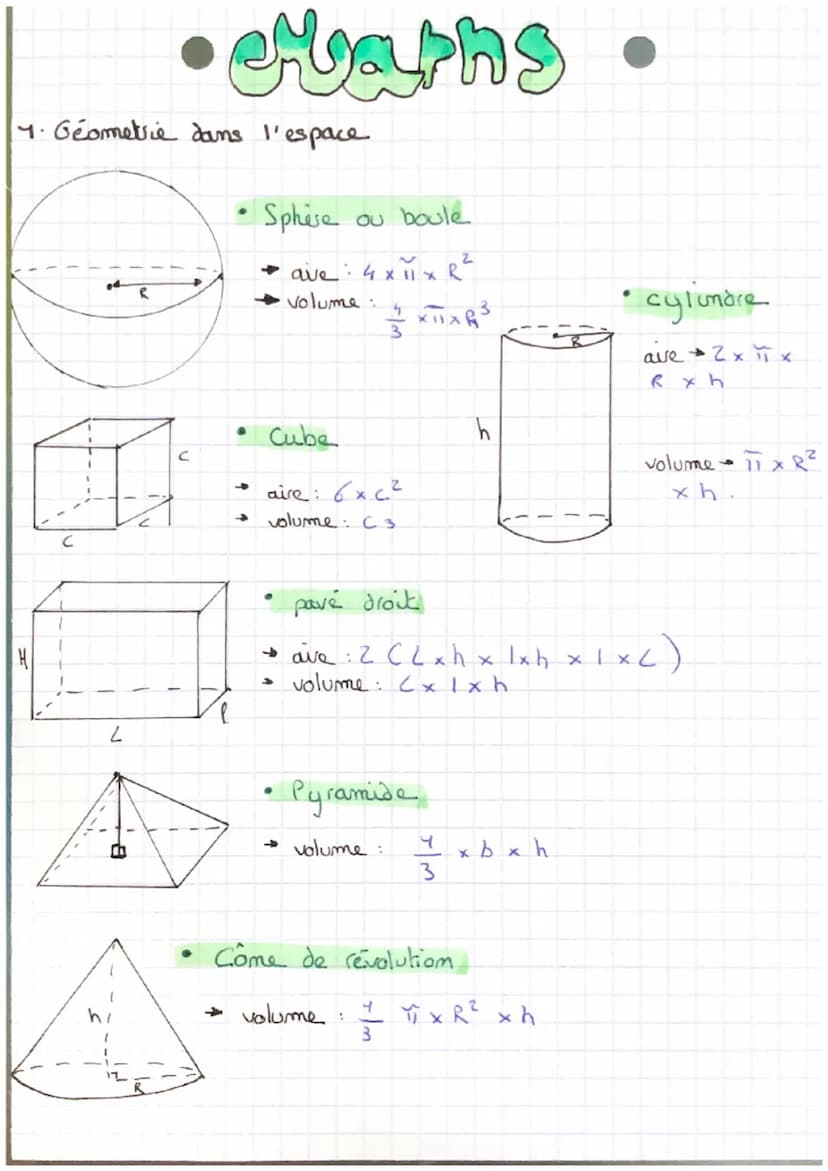 Maths
1. Géometrie dans l'espace
• Sphère ou boule
→ aire : 4 x π x R²
→ volume : 4/3 x π x R³
R
• cylindre
aire → 2 x π x
R x h
volume → π x R²
x h.
R
h
• Cube
→ aire : 6 x c²
→ volume : C3
C
C
C
• pavé droit
→ aire : 2 (L x h x l x h x l x L)
→ volume : L x l x h
H
L
l
• Pyramide
→ volume : 1/3 x b x h
• Cône de révolution
→ volume : 1/3 π x R² x h
h
R